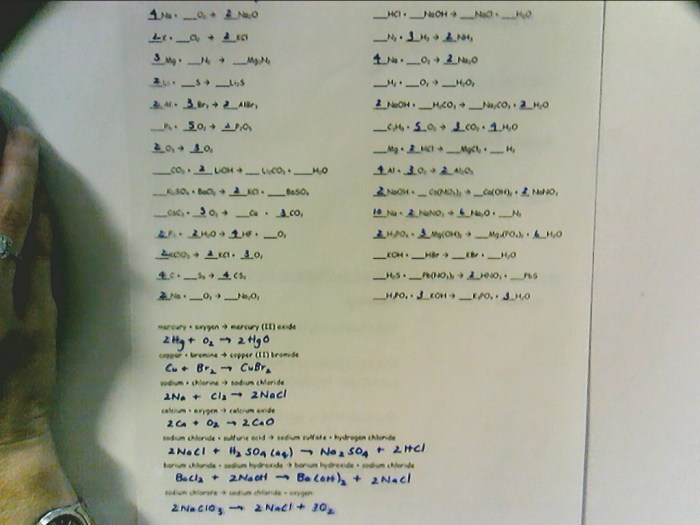 4 Na + __O₂ → 2 Na₂O
2 K + __Cl₂ → 2 KCl
3 Mg + __N₂ → __Mg₃N₂
2 Li + __S → __Li₂S
2 Al + 3 Br₂ → 2 AlBr₃
__P₄ + 5 O₂ →
2 O₃ → 3 O₂
__CO₂ + 2 LiOH → __Li₂CO₃ + __H₂O
__K₂SO₄ + BaCl₂ → 2 KCl + __BaSO₄
3 O₂ → __Ca + 3 CO₂
2 F₂ + 2 H₂O → 4 HF + __O₂
2 KClO₃ → 2 KCl + 3 O₂
4 C + __S₈ → 4 CS₂
2 Na + __O₂ → __Na₂O₂
__HCl + __NaOH → __NaCl + __H₂O
__N₂ + 3 H₂ → 2 NH₃
4 Na + __O₂ → 2 Na₂O
__H₂ + __O₂ → __H₂O₂
2 NaOH + __H₂CO₃ → __Na₂CO₃ + 2 H₂O
__C₃H₈ + 5 O₂ → 3 CO₂ + 4 H₂O
__Mg + 2 HCl → __MgCl₂ + __H₂
4 Al + 3 O₂ → 2 Al₂O₃
2 NaOH + __Ca(NO₃)₂ → __Ca(OH)₂ + 2 NaNO₃
10 Na + 2 NaNO₃ → 6 Na₂O + __N₂
2 H₃PO₄ + 3 Mg(OH)₂ → __Mg₃(PO₄)₂ + 6 H₂O
__KOH + __HBr → __KBr + __H₂O
__H₂S + __Pb(NO₃)₂ → 2 HNO₃ + __PbS
__H₃PO₄ + 3 KOH → __K₃PO₄ + 3 H₂O
mercury + oxygen → mercury (II) oxide
2Hg + O₂ → 2HgO
copper + bromine → copper (II) bromide
Cu + Br₂ → CuBr₂
sodium + chlorine → sodium chloride
2Na + Cl₂ → 2NaCl
calcium + oxygen → calcium oxide
2Ca + O₂ → 2CaO
sodium chloride + sulfuric acid → sodium sulfate + hydrogen chloride
2NaCl + H₂SO₄(aq) → Na₂SO₄ + 2HCl
barium chloride + sodium hydroxide → barium hydroxide + sodium chloride
BaCl₂ + 2NaOH → Ba(OH)₂ + 2NaCl
sodium chlorate → sodium chloride + oxygen
2NaClO₃ → 2NaCl + 3O₂